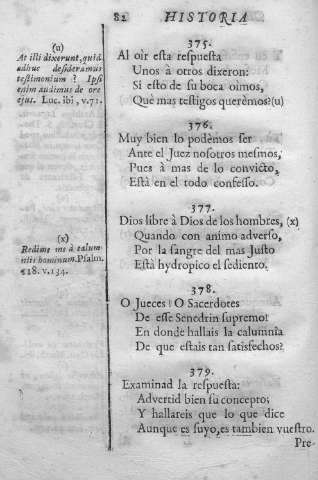 82 HISTORIA
(u)
At illi dixerunt, quid
adhuc desideramus
testimonium? Ipsi
enim audimus de ore
ejus. Luc. ibi, v.71.
375.
Al oìr esta respuesta
Unos à otros dixeron:
Si esto de su boca oimos,
Què mas testigos querèmos?(u)
376.
Muy bien lo podèmos ser
Ante el Juez nosotros mesmos,
Pues à mas de lo convicto,
Està en el todo confesso.
377.
Dios libre à Dios de los hombres, (x)
Quando con animo adverso,
Por la sangre del mas Justo
Està hydropico el sediento.
(x)
Redime me à calum-
niis hominum. Psalm.
118. v.134.
378.
O Jueces! O Sacerdotes
De esse Senedrin supremo!
En donde hallais la calumnia
De que estais tan satisfechos?
379.
Examinad la respuesta:
Advertid bien su concepto;
Y hallareis que lo que dice
Aunque es suyo, es tambien vuestro.
Pre-